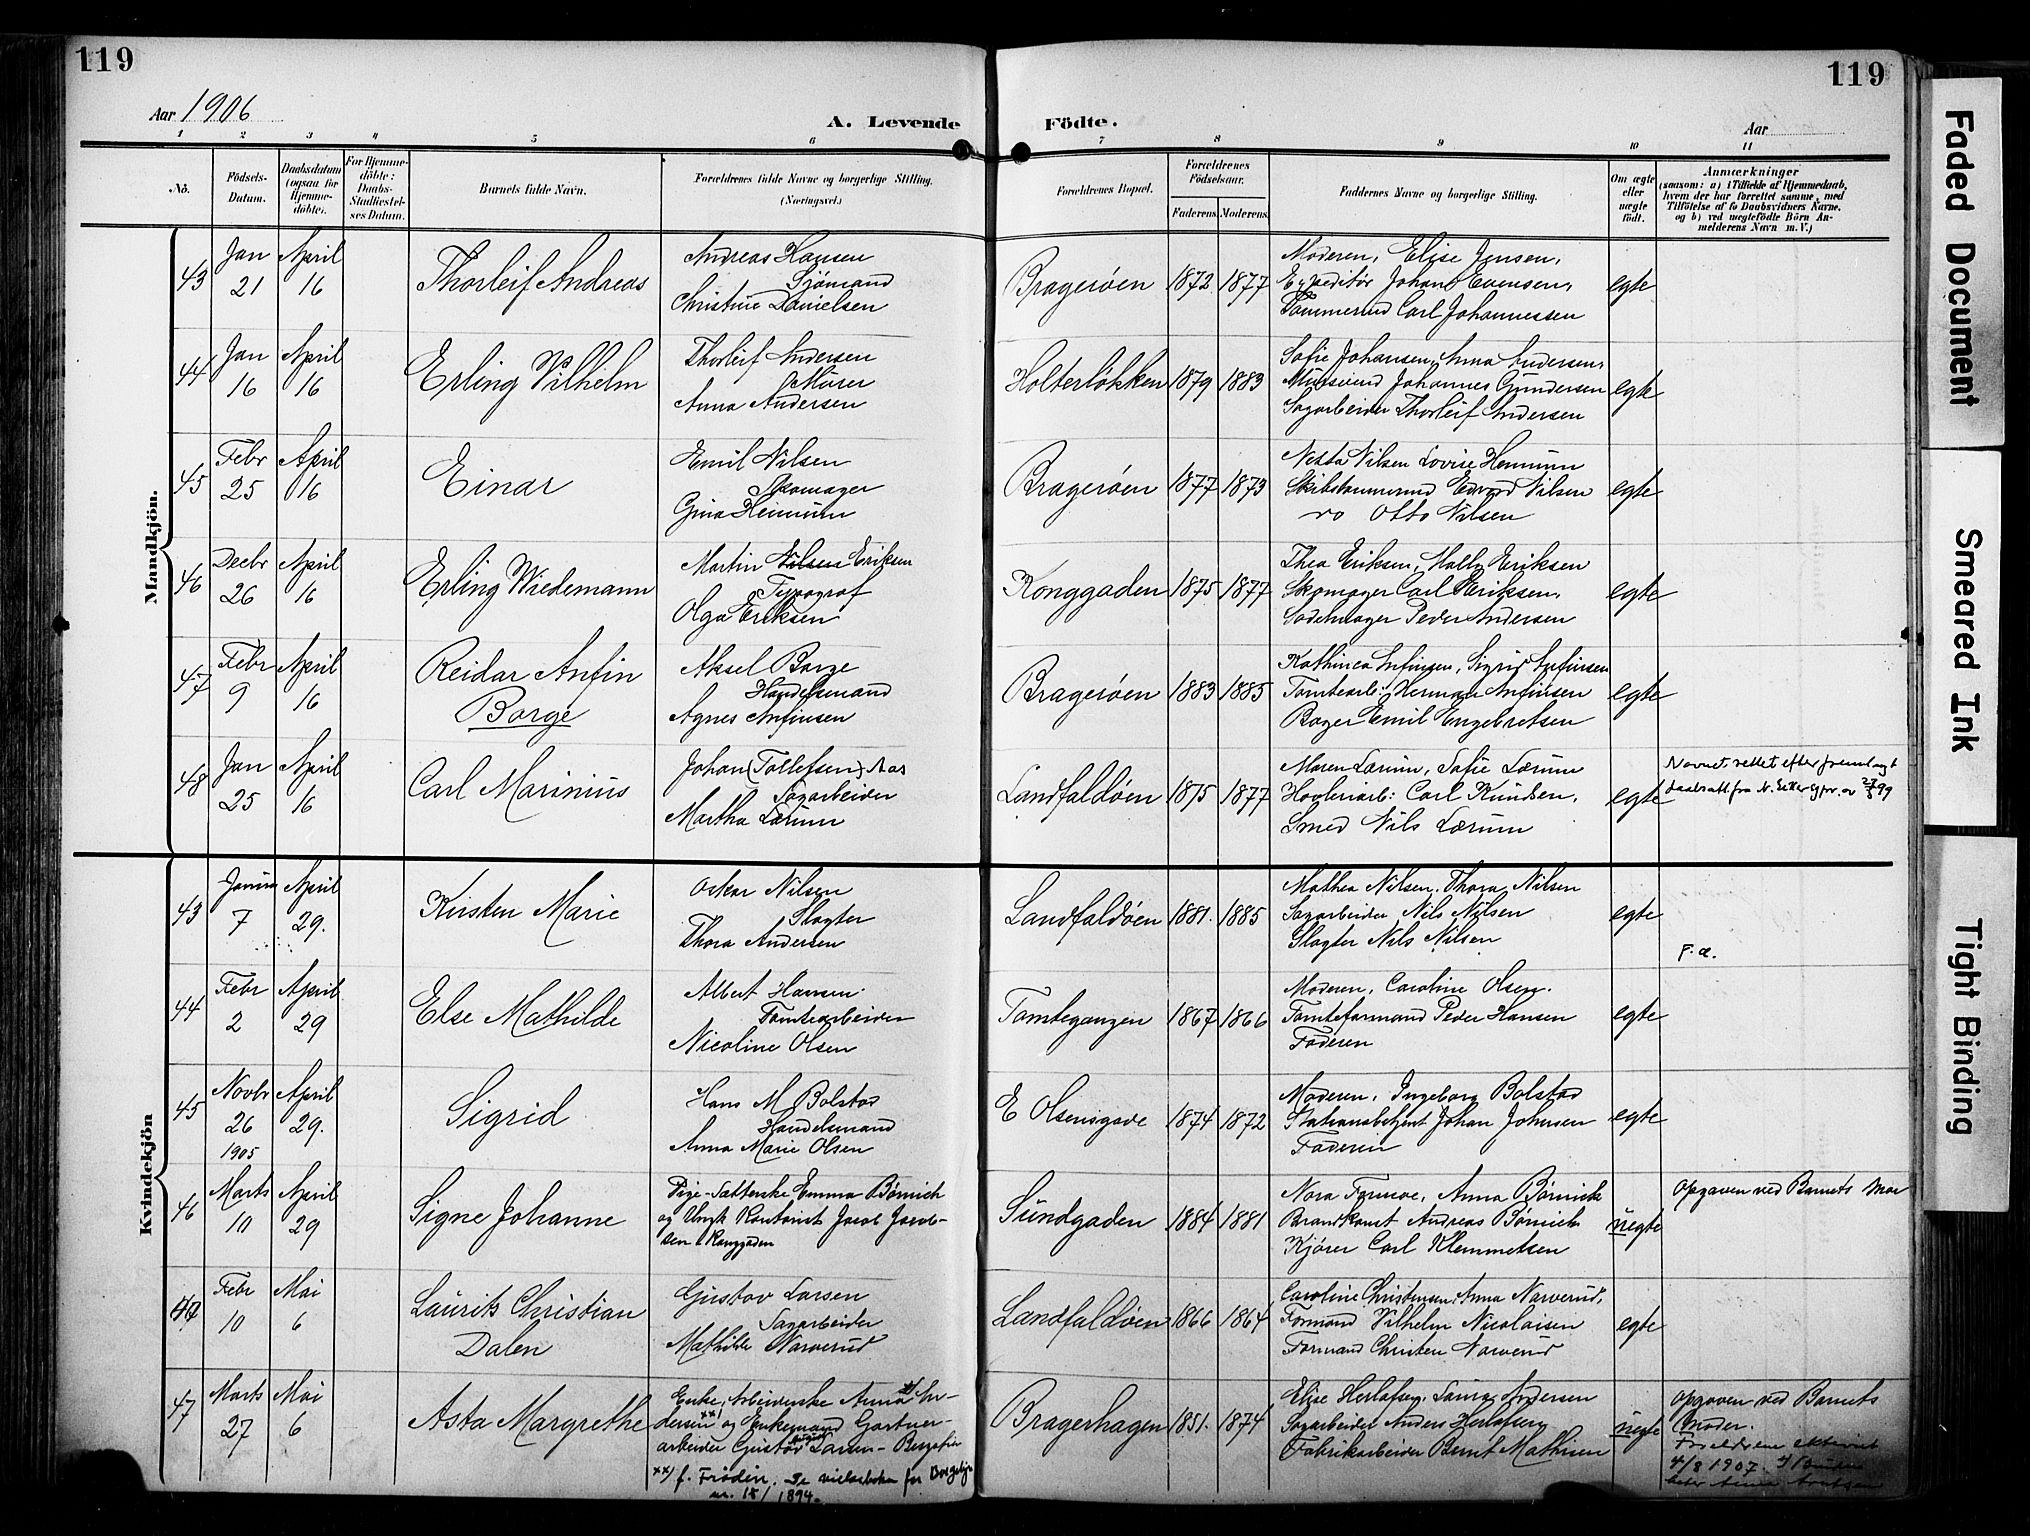 119
119
Aar 1906
A. Levende
Födte.
Aar
1 2 3 4 5 6 7 8 9 10 11
No.
Födsels-
Datum.
Daabsdatum
(ogsaa for
Hjemme-
döbte).
For Hjemme-
döbte:
Daabs-
Stadfæstel-
ses Datum.
Barnets fulde Navn.
Forældrenes fulde Navne og borgerlige Stilling.
(Næringsvei.)
Forældrenes Bopæl.
Forældrenes
Födselsaar.
Faderens.
Moderens.
Faddernes Navne og borgerlige Stilling.
Om ægte
eller
uægte
födt.
Anmærkninger
(saasom: a) i Tilfælde af Hjemmedaab,
hvem der har forrettet samme, med
Tilföielse af to Daabsvidners Navne.
og b) ved uægtefödte Börn An-
melderens Navn m. V.)
Mandkjön.
43
Jan
21
April
16
Thorleif Andreas
Andreas Hansen
Sjömand
Christine Danielsen
Bragerøen
1872
1877
Moderen, Elise Jensen,
Expeditör Johan Evensen,
Tömmermd Carl Johannessen
egte
44
Jan
16
April
16
Erling Vilhelm
Thorleif Andersen
Murer
Anna Andersen
Holterløkken
1879
1883
Sofie Johansen, Anna Andersen,
Johannes Gundersen
Sagarbeider Thorleif Andersen
egte
45
Febr
25
April
16
Einar
Emil Nilsen
Skomager
Gina Hennum
Bragerøen
1877
1873
Nilsen Lovise Hennum
Skibstømmermd Edvard Nilsen
do Otto Nilsen
egte
46
Decbr
26
April
16
Erling Wiedemann
Martin Nilsen Eriksen
Typograf
Olga Eriksen
Konggaden
1875
1877
Thea Eriksen, Hally Eriksen
Skomager Carl Eriksen,
Sadelmager Peder Andersen
egte
47
Febr
9
April
16
Reidar Anfin
Borge
Aksel Borge
Handelsmand
Agnes Anfinsen
Bragerøen
1883
1885
Kathinca Anfinsen, Sigrid Anfinsen
Tomtearb: Herman Anfinsen
Bager Emil Engebretsen
egte
48
Jan
25
April
16
Carl Marinius
Johan (Tollefsen) Aas
Sagarbeider
Martha Lærum
Landfaldøen
1875
1877
Maren Lærum, Sofie Lærum
Høvleriarb: Carl Knudsen,
Smed Nils Lærum
egte
Navnet rettet efter fremlagt
Kvindekjön
43
Januar
7
April
29.
Kirsten Marie
Oskar Nilsen
Slagter
Thora Andersen
Landfaldøen
1881.
1885
Mathea Nilsen. Thora Nilsen
Sagarbeider Nils Nilsen
Slagter Nils Nilsen
egte
F.a.
44
Febr
2
April
29
Else Mathilde
Albert Hansen
Tomtearbeider
Nicoline Olsen
Tomtegangen
1867
1866
Moderen, Caroline Olsen.
Tomteformand Peder Hansen
Faderen
egte
45
Novbr
26
1905
April
29.
Sigrid
Hans M Bolstad
Handelsmand
Anna Marie Olsen
E Olsensgade
1874
1872
Moderen, Ingeborg Bolstad
Stationsbetjent Johan Johnsen
Faderen
egte
46
Marts
10
April
29
Signe Johanne
Pige-Datterske Emma Børnich
og Ungk Kontorist Jacob Jacob-
sen Konggaden
Sundgaden
1884
1881
Nora Formoe, Anna Børnich
Brandkonst Andreas Børnich
Kjører Carl Klemmetsen
uegte
Opgaven ved Barnets Mor
Febr
10
Mai
6
Laurits Christian
Dalen
Gustav Larsen
Sagarbeider
Mathilde Narverud
Landfaldøen
1866
1864
Caroline Christensen, Anna Narverud,
Formand Vilhelm Nicolaisen
Formand Christen Narverud
egte
47
Marts
27
Mai
6
Asta Margrethe
Enke, Arbeiderske Anna An-
dersen xx) og Enkemand Gartner-
arbeider Gustav Larsen -
xx) f. Frödin. Se vielsesboken for
nr. 15/1894.
Bragerhagen
1851.
1874
Elise Herlofsen, Laura Andersen
Sagarbeider Anders Herlofsen
Fabrikarbeider Bernt Mathisen
uegte
Opgaven ved Barnets
Moder.
Forældrene ektevied
4/8 1907.
Faded Document
Smeared Ink
Tight Binding